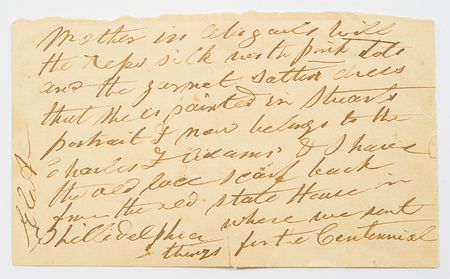 Mother in Abigail's will
the reps silk with pink dots
and the garnet sattin dress
that she is painted in Stuarts
portrait & now belongs to the
Charles F Adams & I have
the old lace scarf back
from the old state House in
Philledelphia where we sent
& things for the Centennial